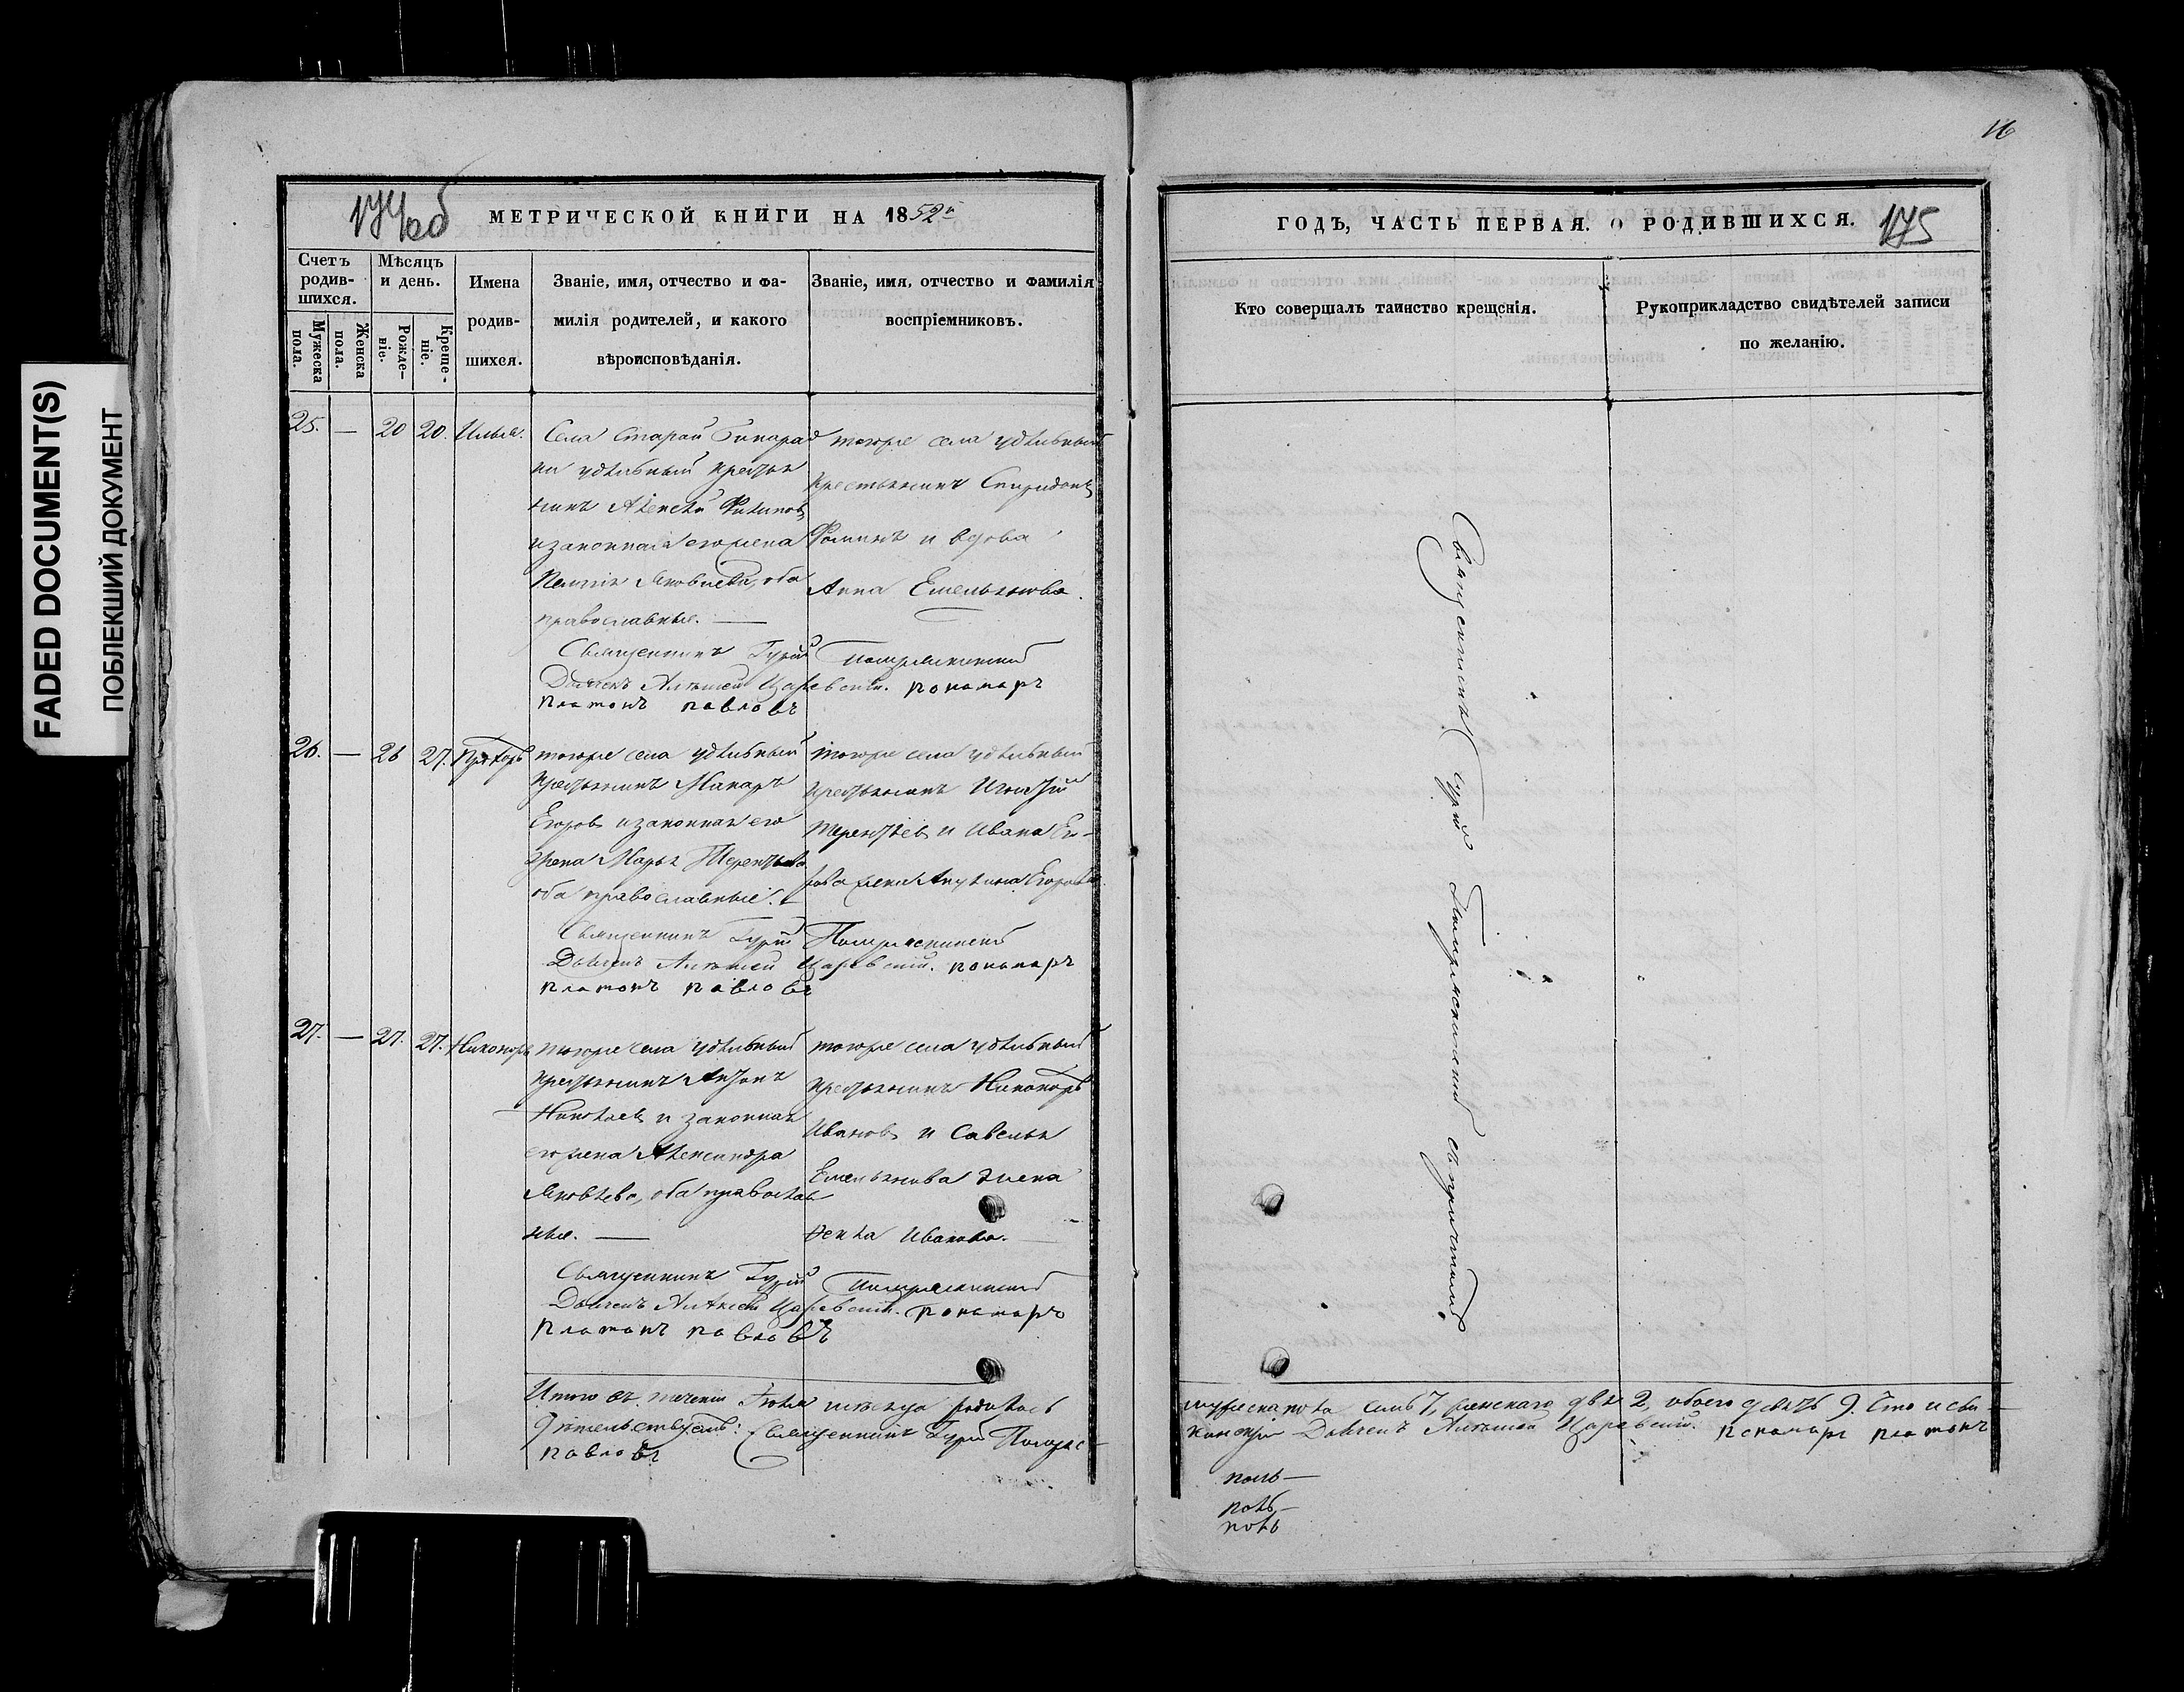 16
FADED DOCUMENT(S)
ПОБЛЕКШИЙ ДОКУМЕНТ
174 об
МЕТРИЧЕСКОЙ КНИГИ НА 1852
Счетъ родив-шихся.
Мужеска пола.
Женска пола.
Мѣсяцъ и день.
Рожде-ніе.
Креще-ніе.
Имена
родив-
шихся.
Званіе, имя, отчество и фа-
милія родителей, и какого
вѣроисповѣданія.
Званіе, имя, отчество и фамилія
воспріемниковъ.
25. — 20 20. Илья.
Села Старой Бинарад
ки удѣльный крестья
нинъ Алексѣй Филипов,
и законная его жена
Яковлева, оба
православные. —
тогоже села удѣльный
крестьянинъ Спиридонъ
Фоминъ и вдова
Анна Емельянова.
Священникъ Гурій
Діаконъ Алексѣй Царевскій. пономарь
платонъ павловъ
26. — 26 27. Прохоръ
тогоже села удѣльный
крестьянинъ Макаръ
Егоровъ и законная его
жена Марья Терентьева
оба православные. —
тогоже села удѣльный
крестьянинъ Игнатій
Терентьевъ и Ивана Его-
рова жена Акулина Егорова.
Священникъ Гурій
Діаконъ Алексѣй Царевскій. пономарь
платонъ павловъ
27. — 27. 27. Никаноръ
тогоже села удѣльный
крестьянинъ Антонъ
Николаевъ и законная
его жена Александра
Яковлева, оба православ
ные. —
тогоже села удѣльный
крестьянинъ Никаноръ
Ивановъ и Савелья
Емельянова жена
Иванова.
Священникъ Гурій
Діаконъ Алексѣй Царевскій. пономарь
платонъ павловъ
Итого въ теченіи Іюля мѣсяца родилось
Священникъ Гурій
павловъ
ГОДЪ, ЧАСТЬ ПЕРВАЯ. О РОДИВШИХСЯ.
175
Кто совершалъ таинство крещенія.
Рукоприкладство свидѣтелей записи
по желанію.
Священникъ Гурій съ причтомъ
мужеска пола семь 7, женскаго двѣ 2, обоего девять 9. Что и сви-
Діаконъ Алексѣй Царевскій. пономарь платонъ